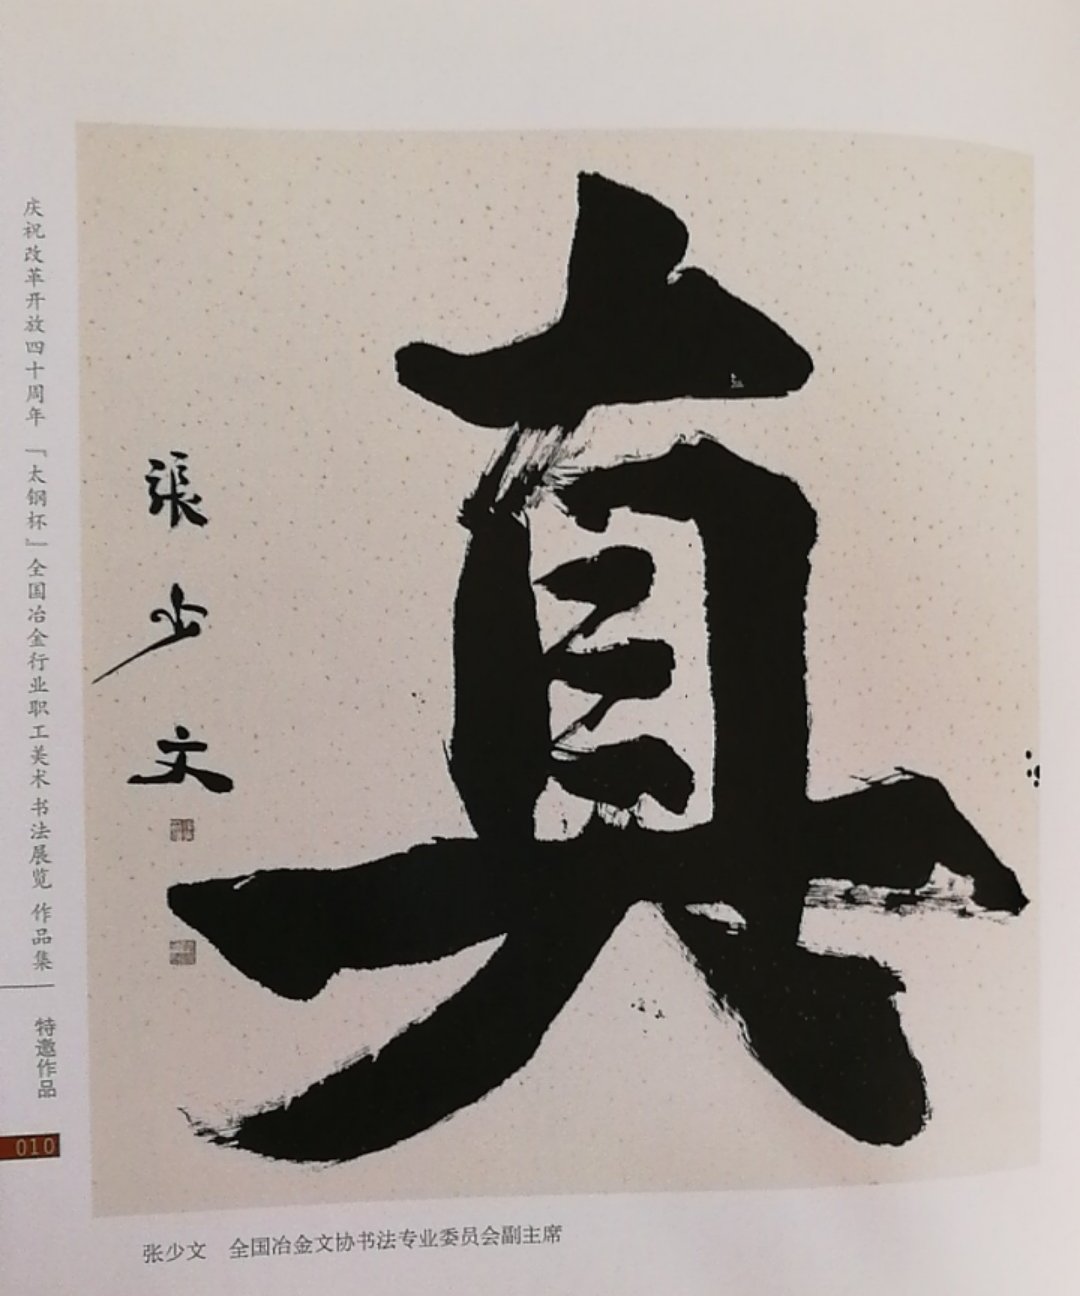 真
張少文
庆祝改革开放四十周年「太钢杯」全国冶金行业职工美术书法展览 作品集
特邀作品
010
张少文 全国冶金文协书法专业委员会副主席